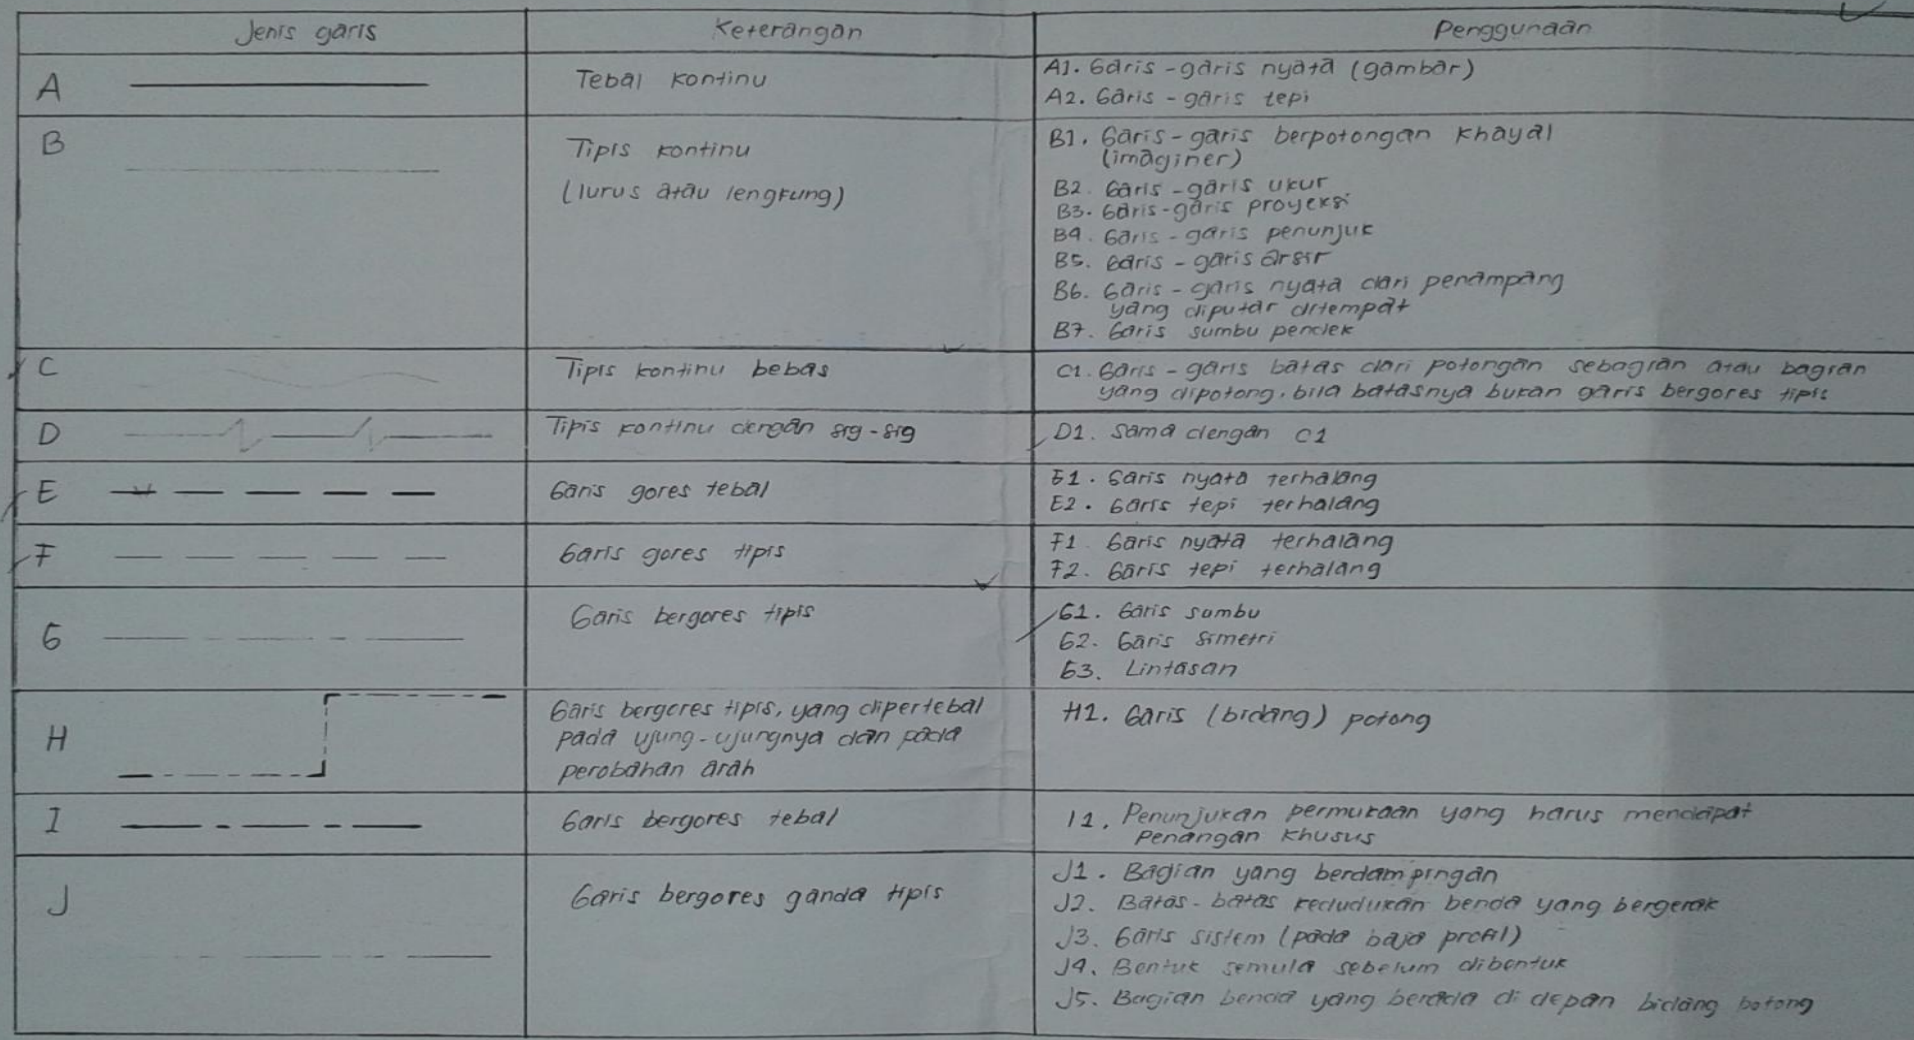 Jenis garis
Keterangan
Penggunaan
A
Tebal kontinu
A1. Garis-garis nyata (gambar)
A2. Garis-garis tepi
B
Tipis kontinu
(lurus atau lengkung)
B1. Garis-garis berpotongan khayal
(imaginer)
B2. Garis-garis ukur
B3. Garis-garis proyeksi
B4. Garis-garis penunjuk
B5. Garis-garis arsir
B6. Garis-garis nyata dari penampang
yang diputar ditempat
B7. Garis sumbu pendek
C
Tipis kontinu bebas
C1. Garis-garis batas dari potongan sebagian atau bagian
yang dipotong, bila batasnya bukan garis bergores tipis
D
Tipis kontinu dengan sig-sig
D1. Sama dengan C1
E
Garis gores tebal
E1. Garis nyata terhalang
E2. Garis tepi terhalang
F
Garis gores tipis
F1 Garis nyata terhalang
F2. Garis tepi terhalang
G
Garis bergores tipis
G1. Garis sumbu
G2. Garis simetri
G3. Lintasan
H
Garis bergores tipis, yang dipertebal
pada ujung-ujungnya dan pada
perobahan arah
H1. Garis (bidang) potong
I
Garis bergores tebal
I1. Penunjukan permukaan yang harus mendapat
Penangan khusus
J
Garis bergores ganda tipis
J1. Bagian yang berdampingan
J2. Batas-batas kedudukan benda yang bergerak
J3. Garis sistem (pada baja profil)
J4. Bentuk semula sebelum dibentuk
J5. Bagian benda yang berada di depan bidang potong